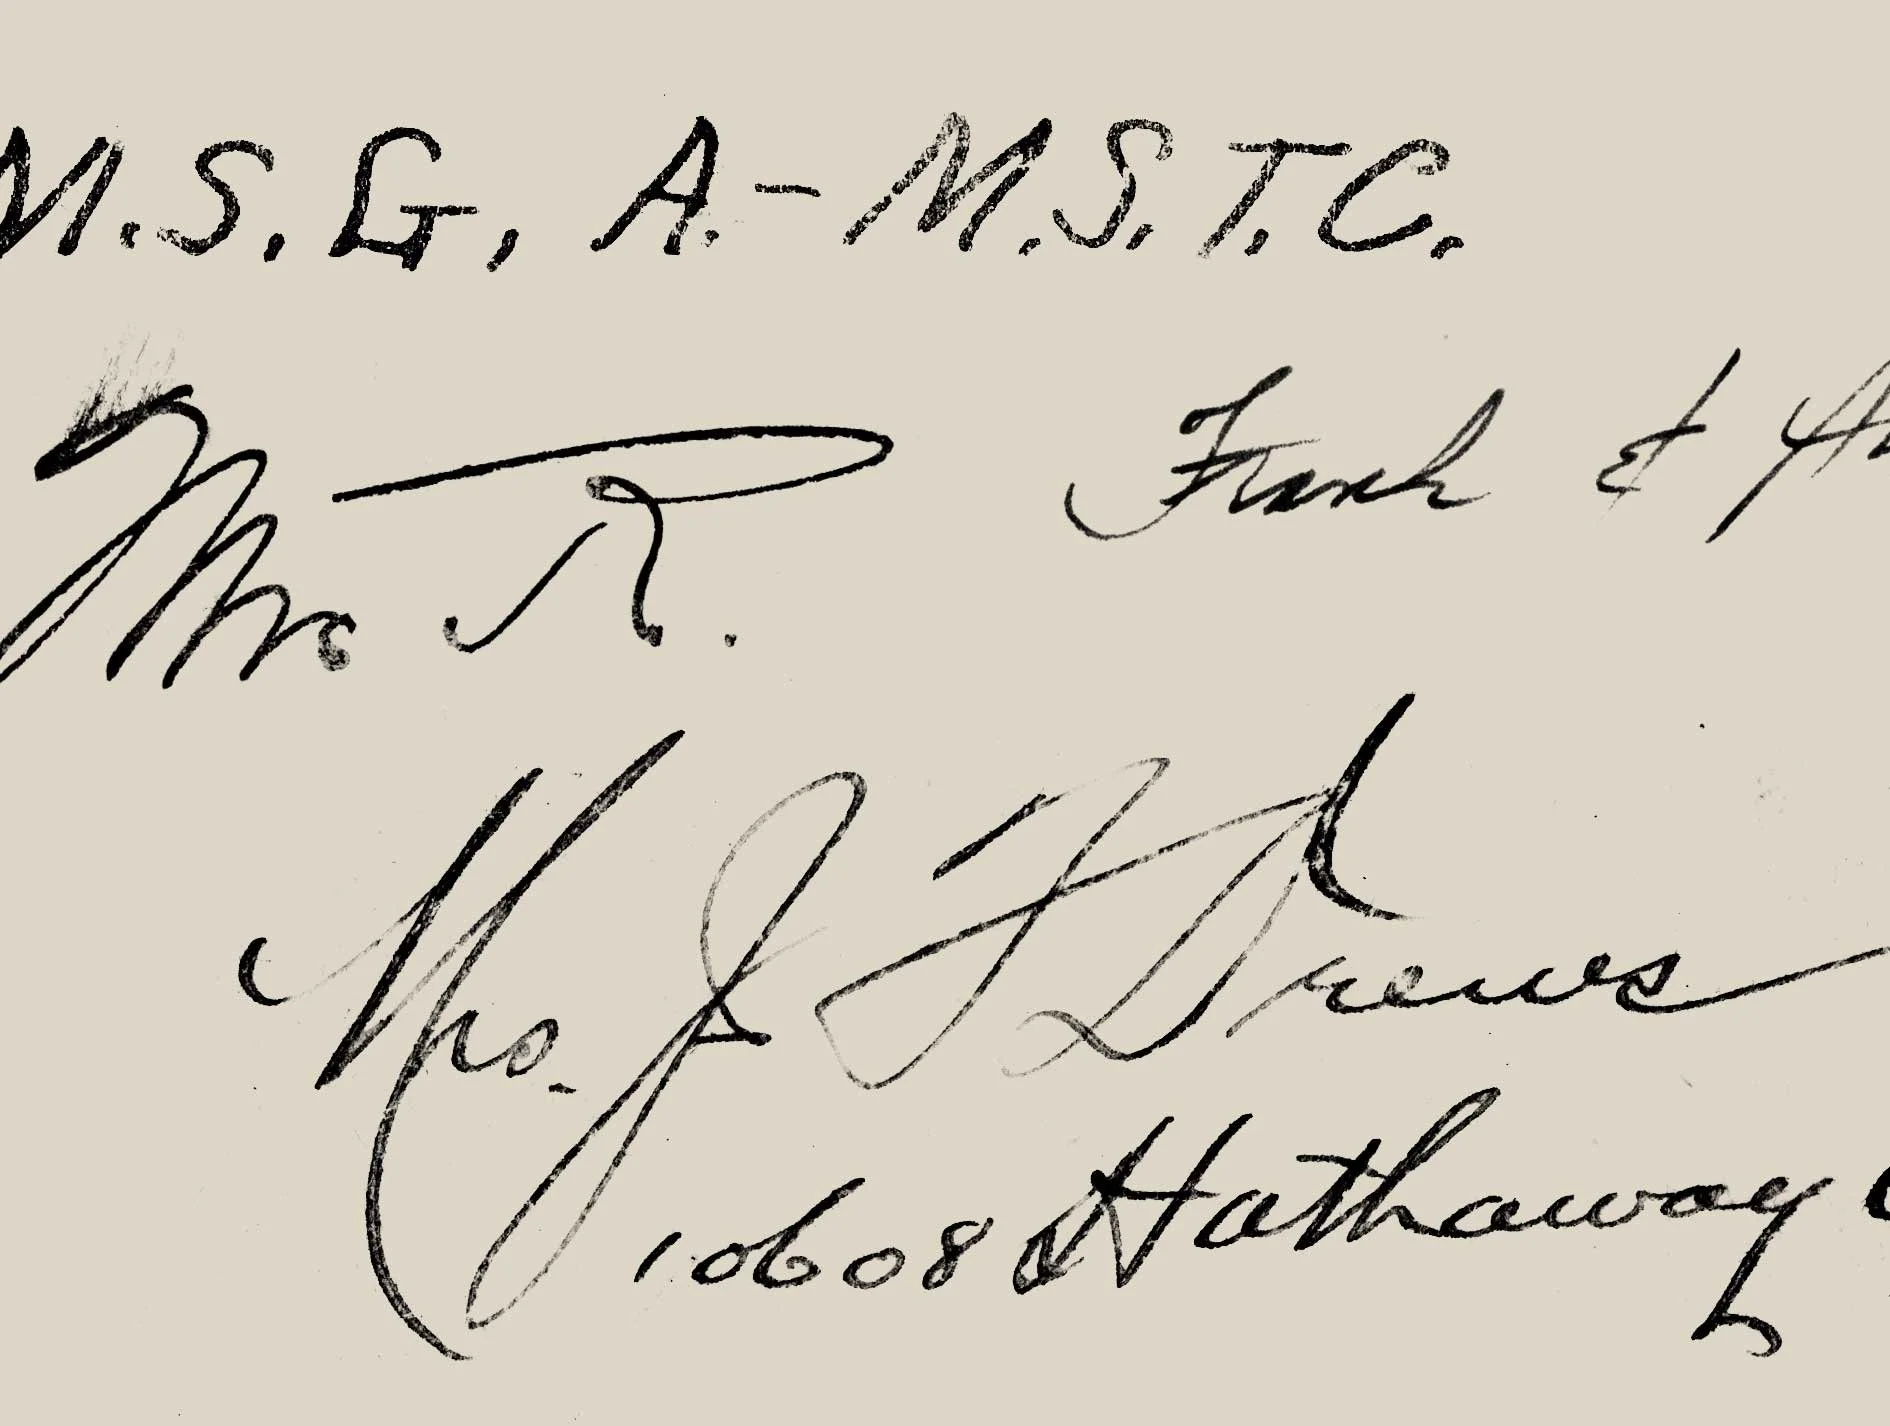 M.S.G.A.-M.S.T.C.
Mrs R. Frank &
Mrs. J F Drews
10608 Hathaway